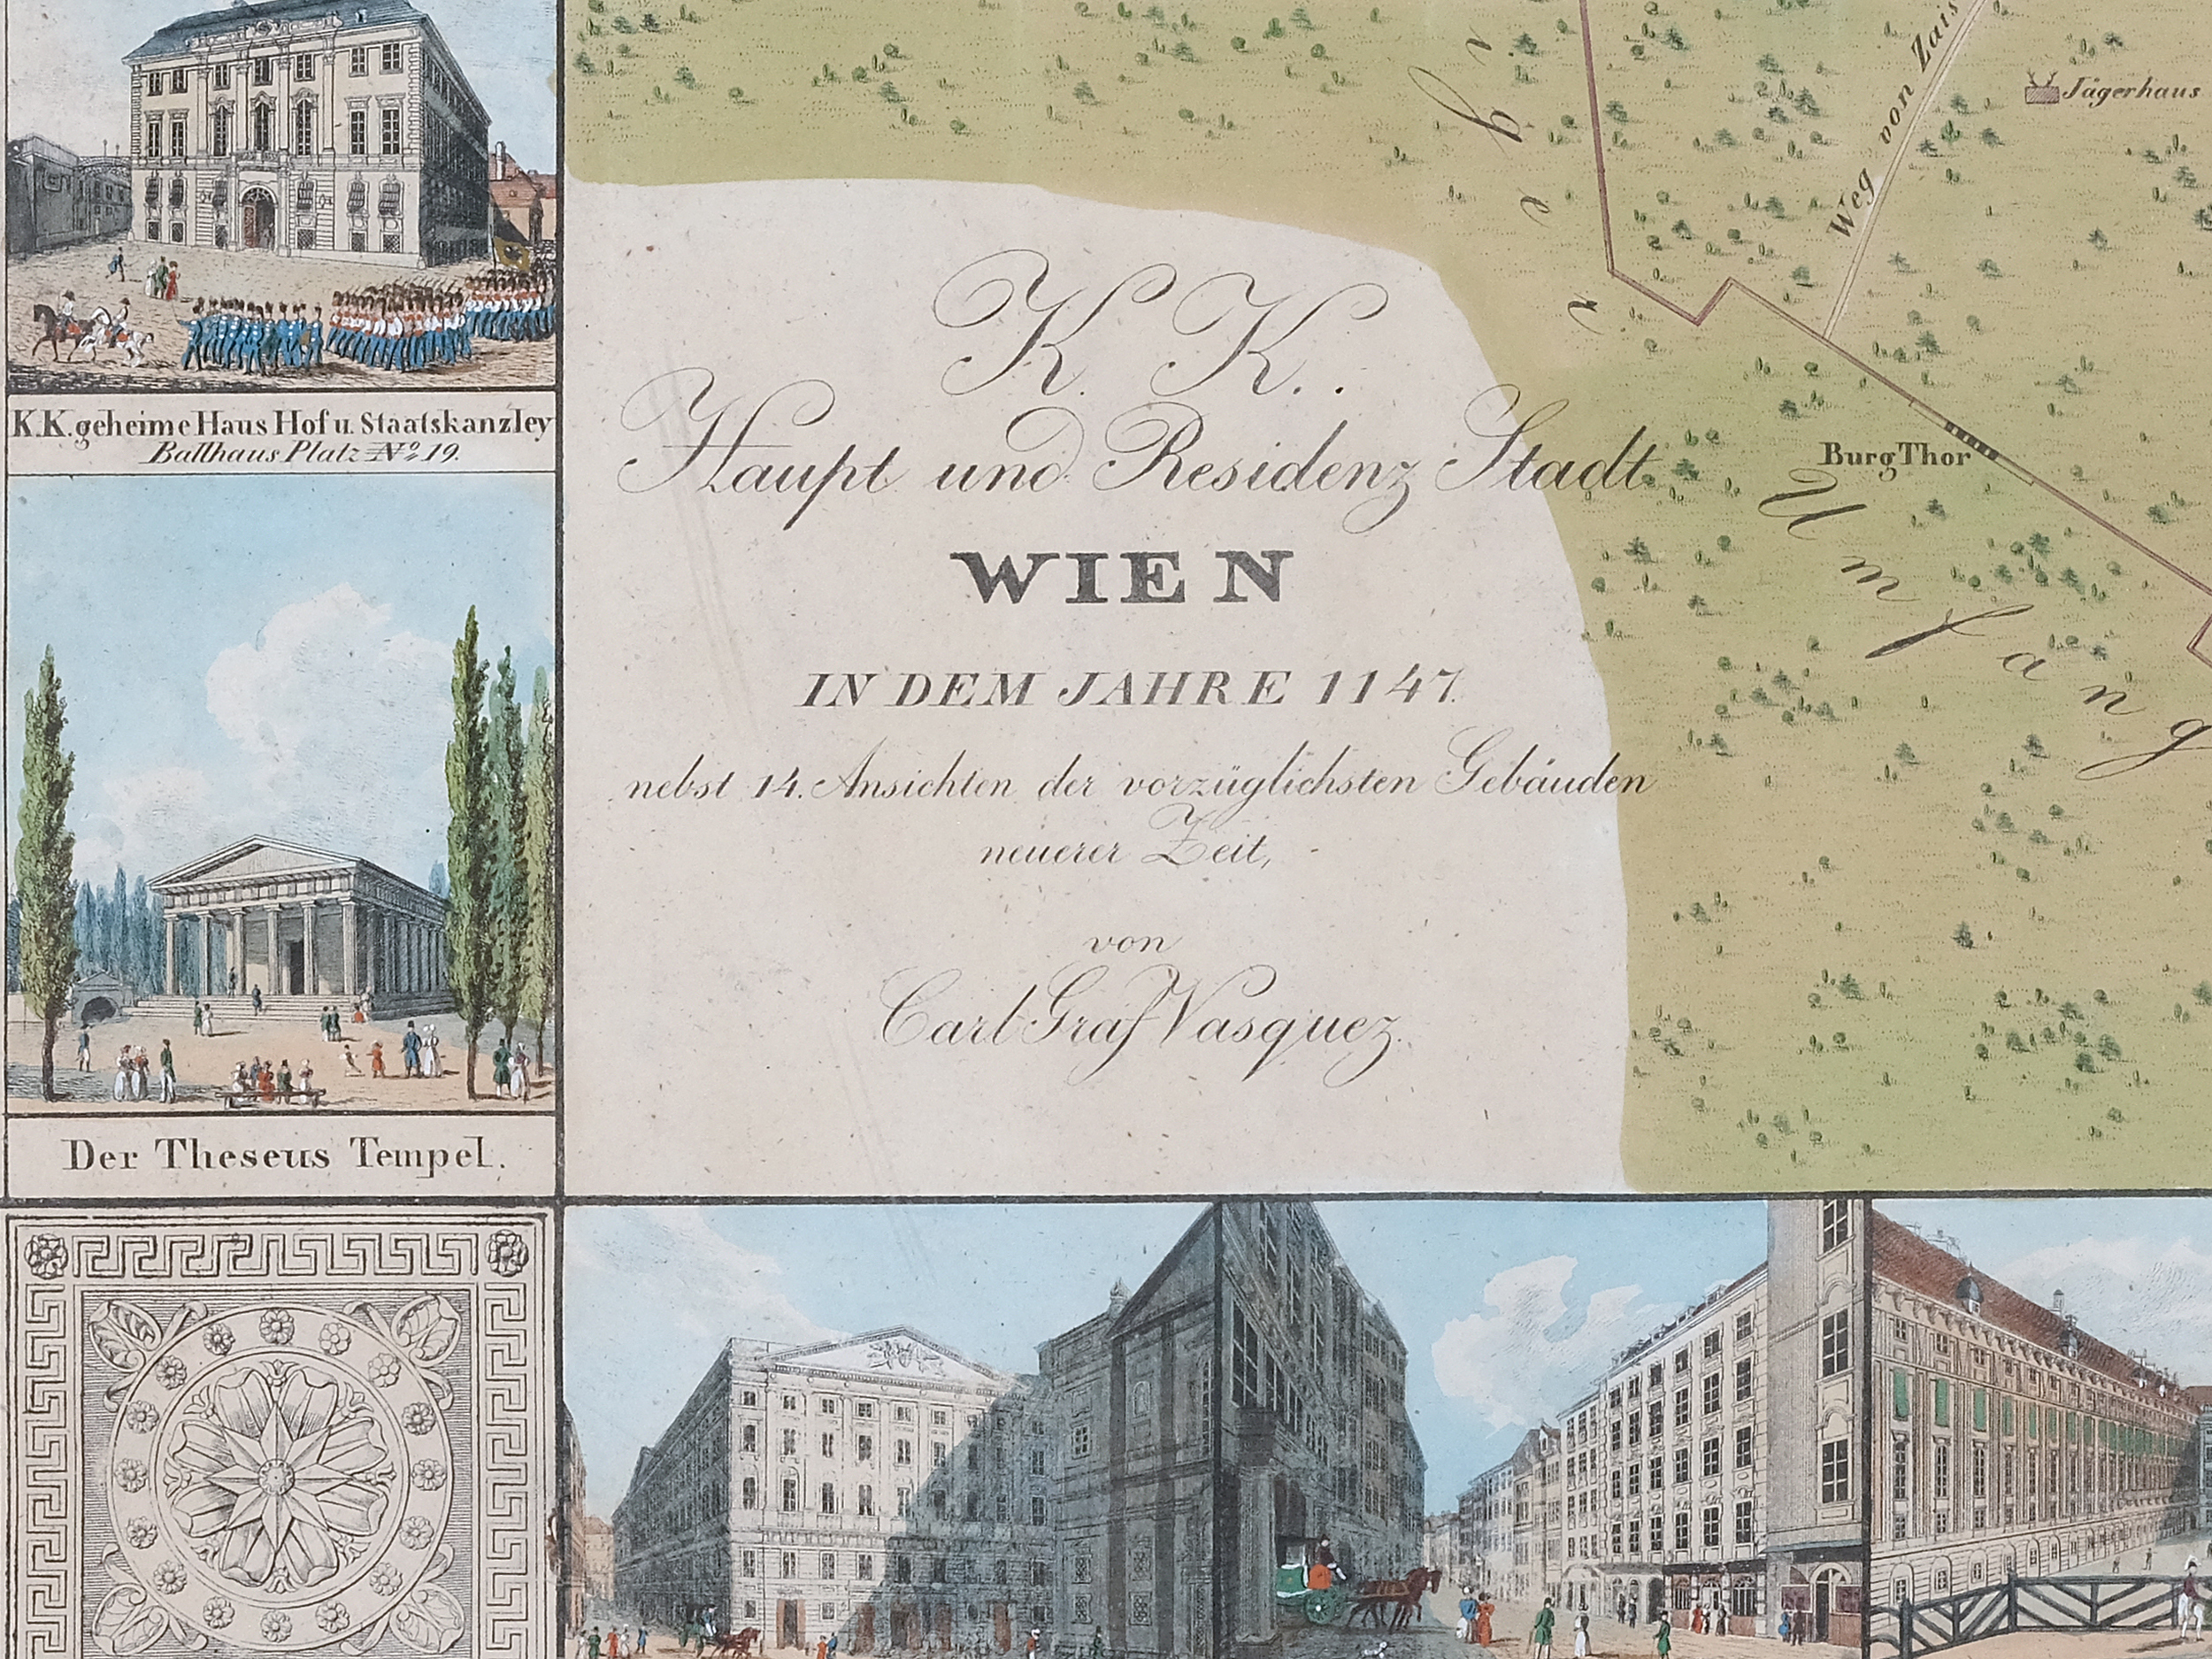 K.K. geheime Haus Hof u. Staatskanzley
Ballhaus Platz No. 19.
Der Theseus Tempel.
K. K.
Haupt und Residenz Stadt
WIEN
IN DEM JAHRE 1147.
nebst 14. Ansichten der vorzüglichsten Gebäuden
neuerer Zeit,
von
Carl Graf Vasquez.
Weg von Zais
Jägerhaus
Burg Thor
Umfang